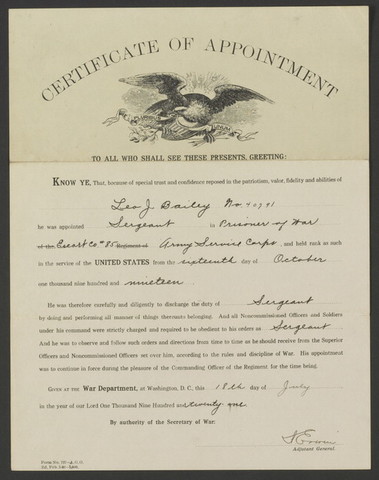 CERTIFICATE OF APPOINTMENT
TO ALL WHO SHALL SEE THESE PRESENTS, GREETING:
KNOW YE, That, because of special trust and confidence reposed in the patriotism, valor, fidelity and abilities of
Leo J. Bailey No. 40791
he was appointed Sergeant in Prisoner of War
of the Escort Co. #85 Regiment of Army Service Corps, and held rank as such
in the service of the UNITED STATES from the sixteenth day of October
one thousand nine hundred and nineteen.
He was therefore carefully and diligently to discharge the duty of Sergeant
by doing and performing all manner of things thereunto belonging. And all Noncommissioned Officers and Soldiers
under his command were strictly charged and required to be obedient to his orders as Sergeant
And he was to observe and follow such orders and directions from time to time as he should receive from the Superior
Officers and Noncommissioned Officers set over him, according to the rules and discipline of War. His appointment
was to continue in force during the pleasure of the Commanding Officer of the Regiment for the time being.
GIVEN AT THE WAR DEPARTMENT, at Washington, D. C., this 18th day of July
in the year of our Lord One Thousand Nine Hundred and twenty one.
By authority of the Secretary of War:
Adjutant General.